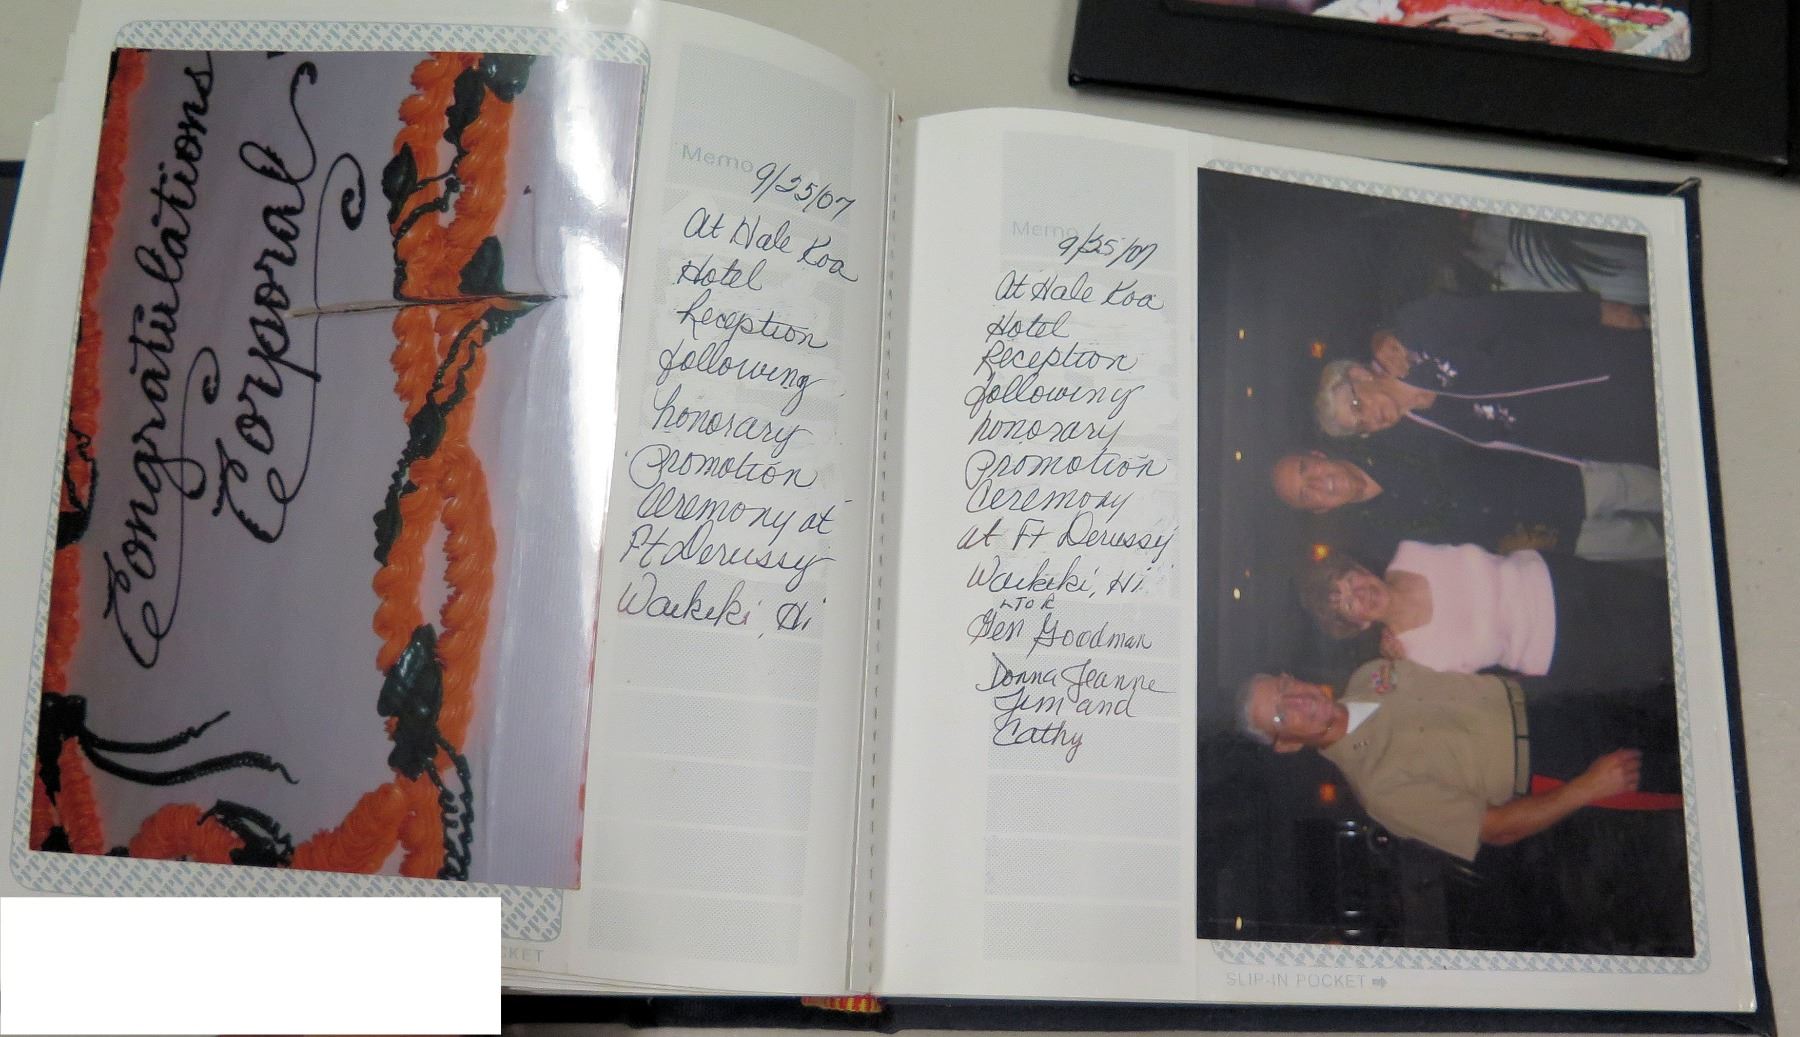 Congratulations
Corporal
Memo
9/25/07
At Hale Koa
Hotel
Reception
following
honorary
Promotion
Ceremony at
Ft Derussy
Waikiki, Hi
CKET
Memo
9/25/07
At Hale Koa
Hotel
Reception
following
honorary
Promotion
Ceremony
at Ft Derussy
Waikiki, Hi
LTOR
Gen Goodman
Donna Jeanne
Jim and
Cathy
SLIP-IN POCKET